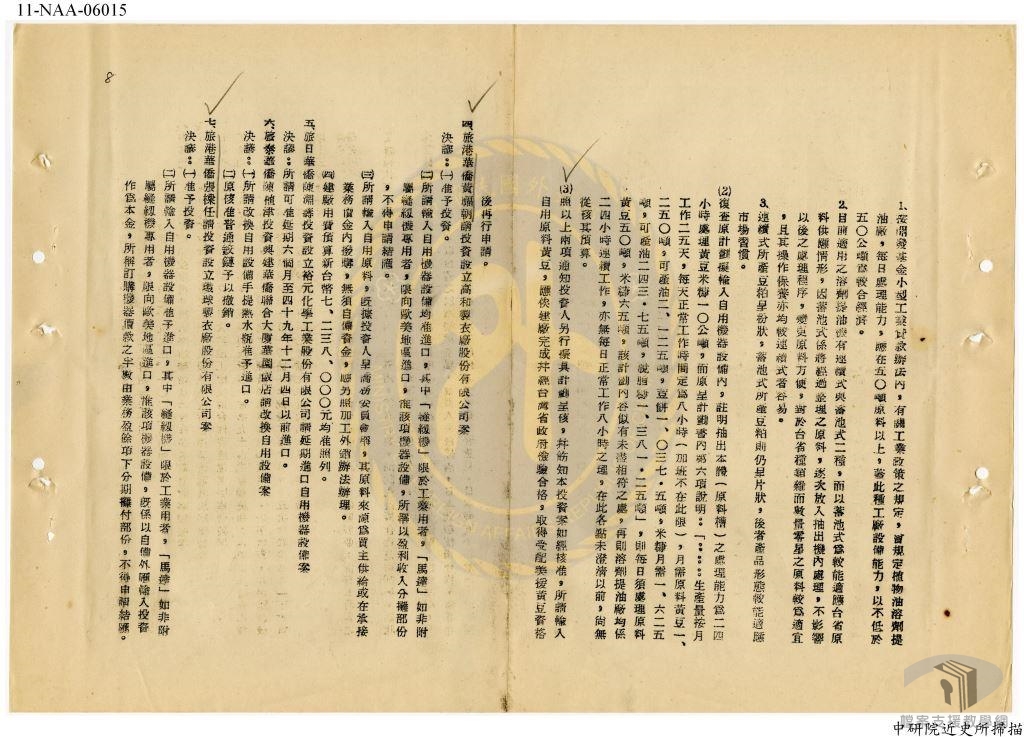 11-NAA-06015
1.按開發基金小型工業貸款辦法內,有關工業政策之規定,當規定植物油溶劑提
油廠,每日處理能力,應在五〇噸原料以上,蓋此種工廠設備能力,以不低於
五〇公噸為較合經濟。
2.目前適用之溶劑提油廠有連續式與蓄池式二種,而以蓄池式為較能適應台省原
料供應情形,因蓄池式係將經過整理之原料,逐次放入抽出機內處理,不影響
以後之處理程序,變更原料方便,對於台省種類繁而數量零星之原料較為適宜
,且其操作保養亦均較連續式者容易。
3.連續式所產豆粕呈粉狀,蓄池式所產豆粕則仍呈片狀,後者產品形態較能適應
市場習慣。
(2)復查原計劃擬輸入自用機器設備內,註明抽出本機(原料槽)之處理能力為二四
小時處理黃豆米糠一〇公噸,而原呈計劃書內第六項說明:「⋯⋯生產量按月
工作二五天,每天正常工作時間定為八小時(加班不在此限),月需原料黃豆一、
二五〇噸,可產油二、一二五噸,豆餅一、〇三七·五噸,米糠月需一、六二五
噸,可產油二四三·七五噸,脫脂糠一、三八一·二五噸」即每日須處理原料
黃豆五〇噸,米糠六五噸,該計劃內容似有未盡相符之處,再則溶劑提油廠均係
二四小時連續工作,亦無每日正常工作八小時之理,在此各點未澄清以前,尚無
從核其預算。
(3)照以上兩項通知投資人另行擬具計劃呈核,并飭知本投資案如經核准,所請輸入
自用原料黃豆,應俟建廠完成并經台灣省政府檢驗合格,取得受配美援黃豆資格
後再行申請。
四、旅港華僑黃耀朝請投資設立高和製衣廠股份有限公司案
決議:㈠准予投資。
㈡所請輸入自用機器設備均准進口,其中「縫紉機」限於工業用者,「馬達」如非附
屬縫紉機專用者,限向歐美地區進口,准該項機器設備,所請以盈利收入分攤部份
,不得申請結匯。
㈢所請輸入自用原料,既據投資人呈請務安員會稱,其原料來源為買主供給或在承接
業務價金內撥購,無須自備資金,應另照加工外銷辦法辦理。
㈣建廠用費預算新台幣七、二三八、〇〇〇元均准照列。
五、旅日華僑陳淵壽投資設立裕元化學工業股份有限公司請延期進口自用機器設備案
決議:所請可准延期六個月至四十九年十二月四日以前進口。
六、旅泰華僑陳植津投資與建華僑聯合大廈華國飯店請改換自用設備案
決議:㈠所請改換自用設備手提熱水瓶准予進口。
㈡原核准普通玻鏡予以撤銷。
七、旅港華僑張樑任請投資設立環球製衣廠股份有限公司案
決議:㈠准予投資。
㈡所請輸入自用機器設備准予進口,其中「縫紉機」限於工業用者,「馬達」如非附
屬縫紉機專用者,限向歐美地區進口,准該項機器設備,既係以自備外匯輸入投資
作為本金,所稱訂購機器價款之半數由業務盈餘項下分期攤付部份,不得申請結匯。
8
檔案支援教學網
中研院近史所掃描